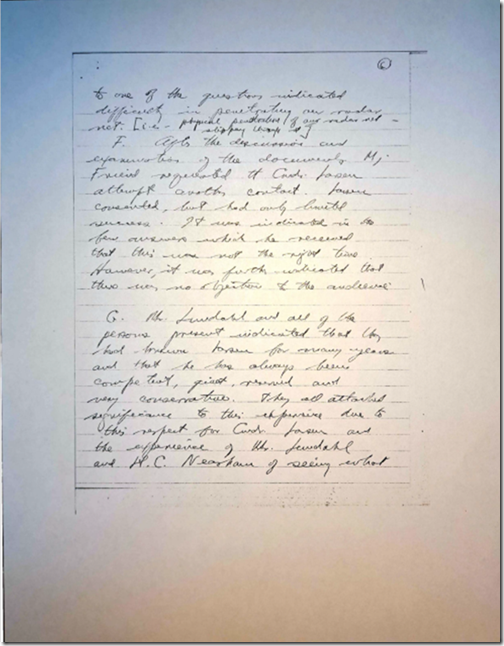 6
to one of the questions indicated
difficulty in penetrating our radar
net. [i.e. - physical penetration of our radar net -
slipping through it]
F. After the discussion and
examination of the documents Mj.
Friend requested tt Cmdr. Larsen
attempt another contact. Larsen
consented, but had only limited
success. It was indicated in the
few answers which he received
that this was not the right time
However, it was further indicated that
there was no objection to the audience
G. Mr. Lundahl and all of the
persons present indicated that they
had known Larsen for many years
and that he has always been
competent, quiet, reserved and
very conservative. They all attached
significance to this experience due to
this respect for Cmdr. Larsen and
the experience of Mr. Lundahl
and H.C. Nearsham of seeing what